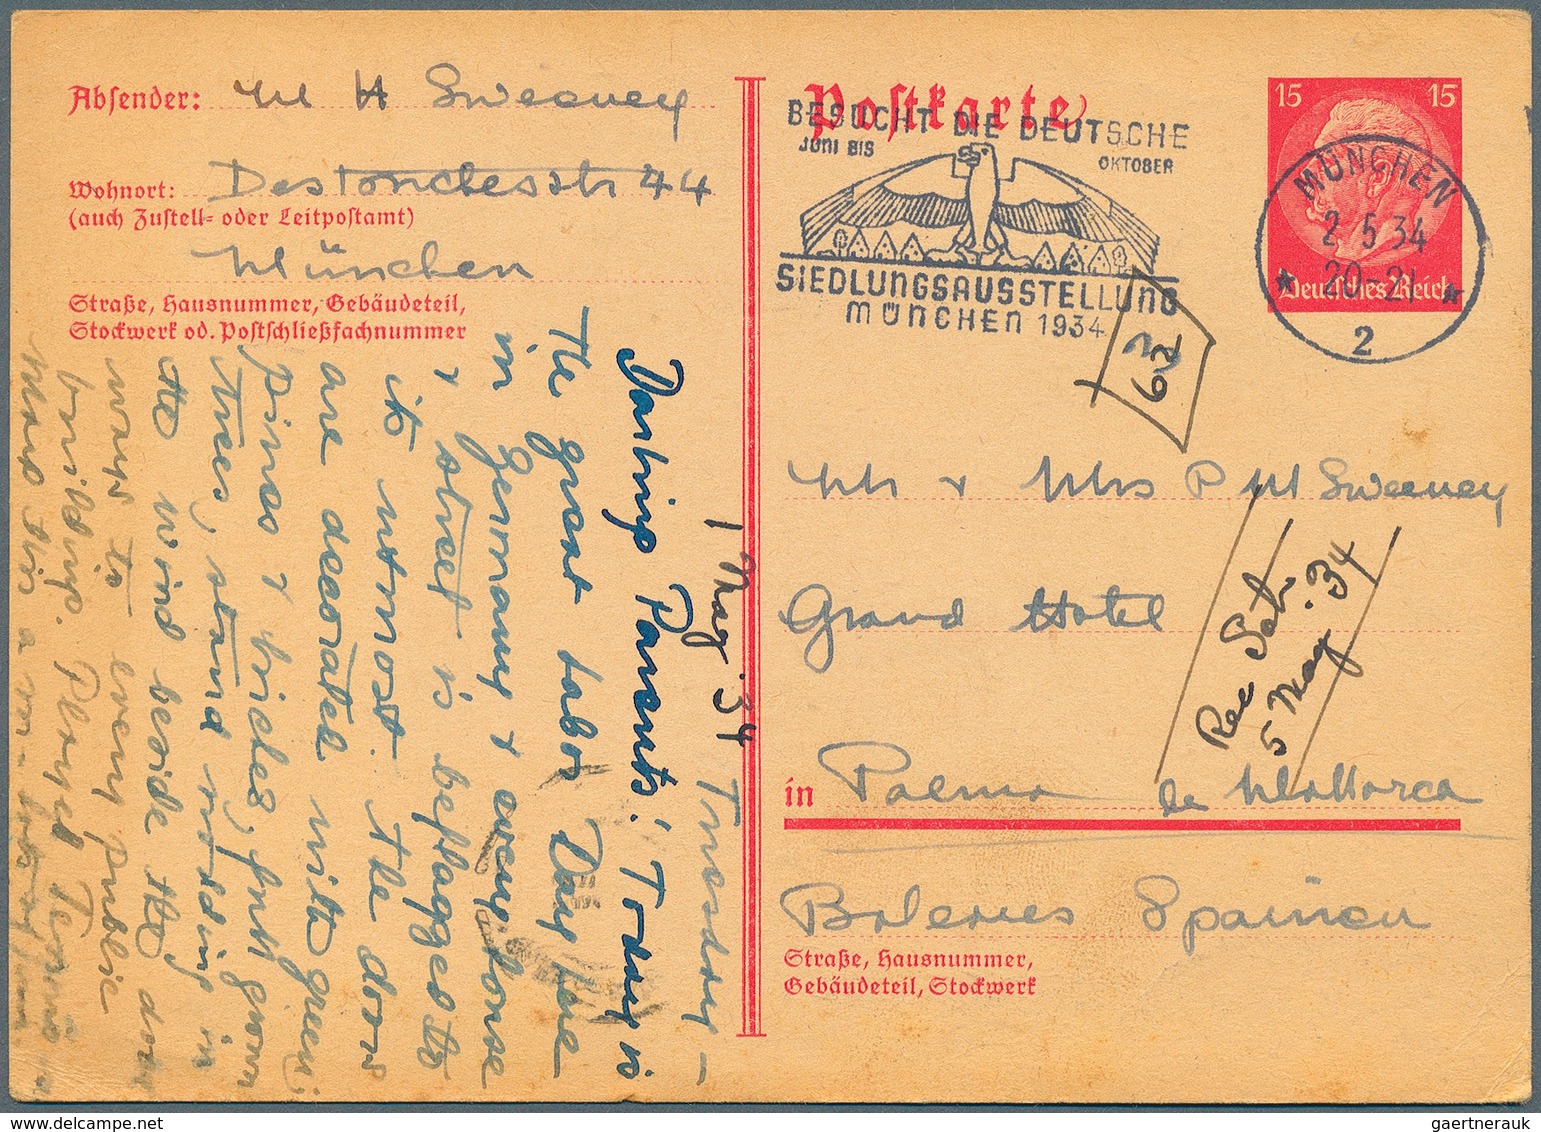 Absender: M H Sweeney
Wohnort: Destouchesstr 44
(auch Zustell- oder Leitpostamt)
München
Straße, Hausnummer, Gebäudeteil,
Stockwerk od. Postschließfachnummer
Tuesday –
1 May '34
Darling Parents! Today is
the great Labor Day here
in Germany & everyhouse
& street is beflagged to
its utmost. The doors
are decorated with green;
pines & birches, fresh green
trees, stand nodding in
the wind beside the door
ways to every public
building. Played Tennis
Postkarte
BESUCHT DIE DEUTSCHE
JUNI BIS OKTOBER
SIEDLUNGSAUSSTELLUNG
MÜNCHEN 1934
15 15
Deutsches Reich
MÜNCHEN
2 5 34
20-21
2
62
Mr & Mrs P M Sweeney
Grand Hotel
Rec Sat
5 May '34
in Palma de Mallorca
Balenes Spainien
Straße, Hausnummer,
Gebäudeteil, Stockwerk
gaertnerauk@hotmail.com